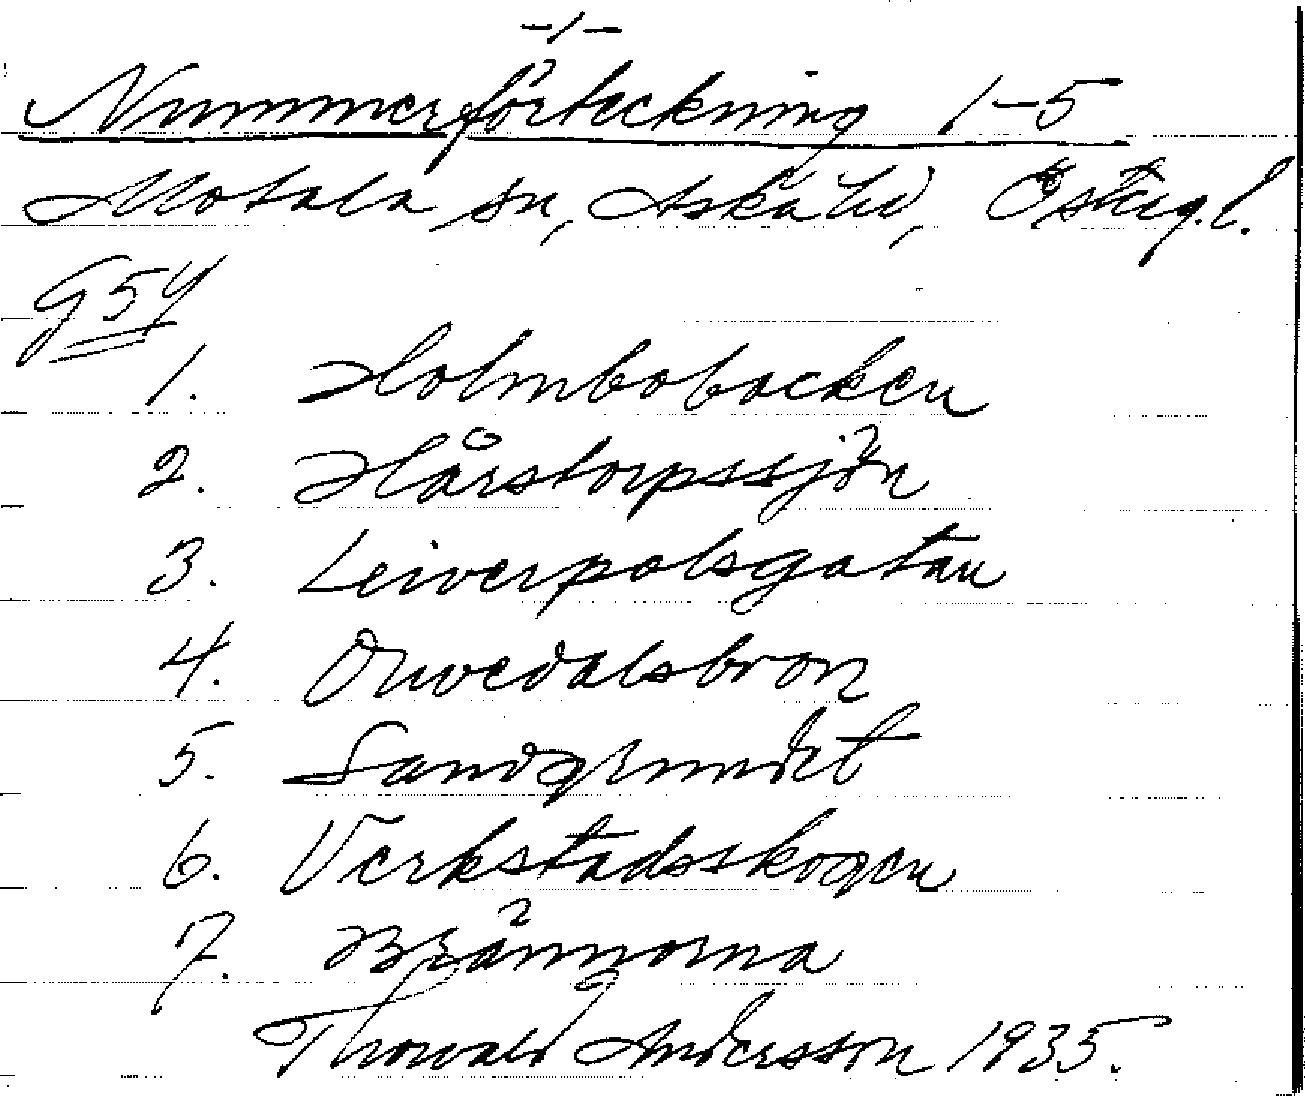 -1-
Nummerförteckning 1-5
Motala sn, Aska hd, Österg.l.
G54
1. Holmbobacken
2. Hårstorpssjön
3. Leiverpolsgatan
4. Duvedalsbron
5. Sandgrundet
6. Verkstadsskogen
7. Brännorna
Thorvald Andersson 1935.